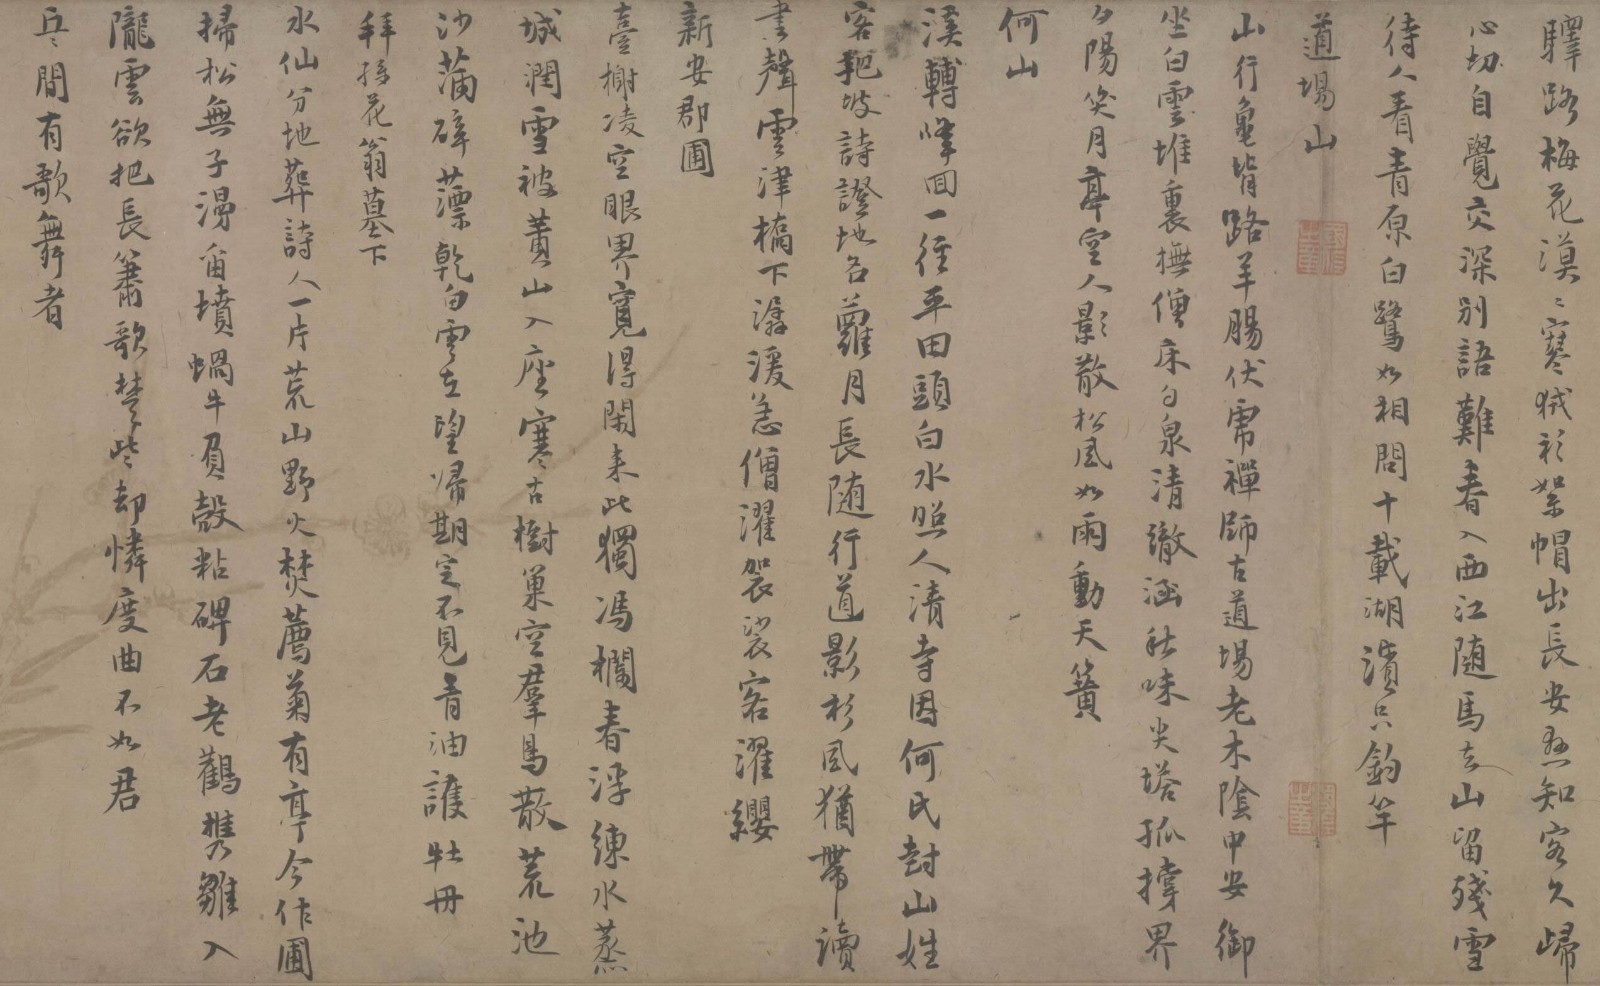 驛路梅花漠〻寒絨衫絮帽出長安懸知客久歸
心切自覺交深別語難春入西江随馬去山留殘雪
待人看青原白鷺如相問十載湖濱只釣竿
道場山
山行龜背路羊腸伏虎禪師古道場老木陰中安御
坐白雲堆裏撫僧床勺泉清徹涵秋味尖塔孤撐界
夕陽笑月亭空人影散松風如雨動天簧
何山
溪轉峰回一徑平田頭白水照人清寺因何氏封山姓
客靶坡詩證地名蘿月長随行道影杉風猶帶讀
書聲雲津橋下潺湲急僧濯袈裟客濯纓
新安郡圃
臺榭凌空眼界寬得閑来此獨馮欄春浮練水蒸
城潤雪被黄山入座寒古樹巢空羣鳥散荒池
沙滿碎萍乾白雲在望歸期定不見青油護牡丹
拜孫花翁墓下
水仙分地葬詩人一片荒山野火焚薦菊有亭今作圃
掃松無子漫留墳蝸牛負殼粘碑石老鸛携雛入
隴雲欲把長簫歌楚些却憐度曲不如君
丘間有歌舞者